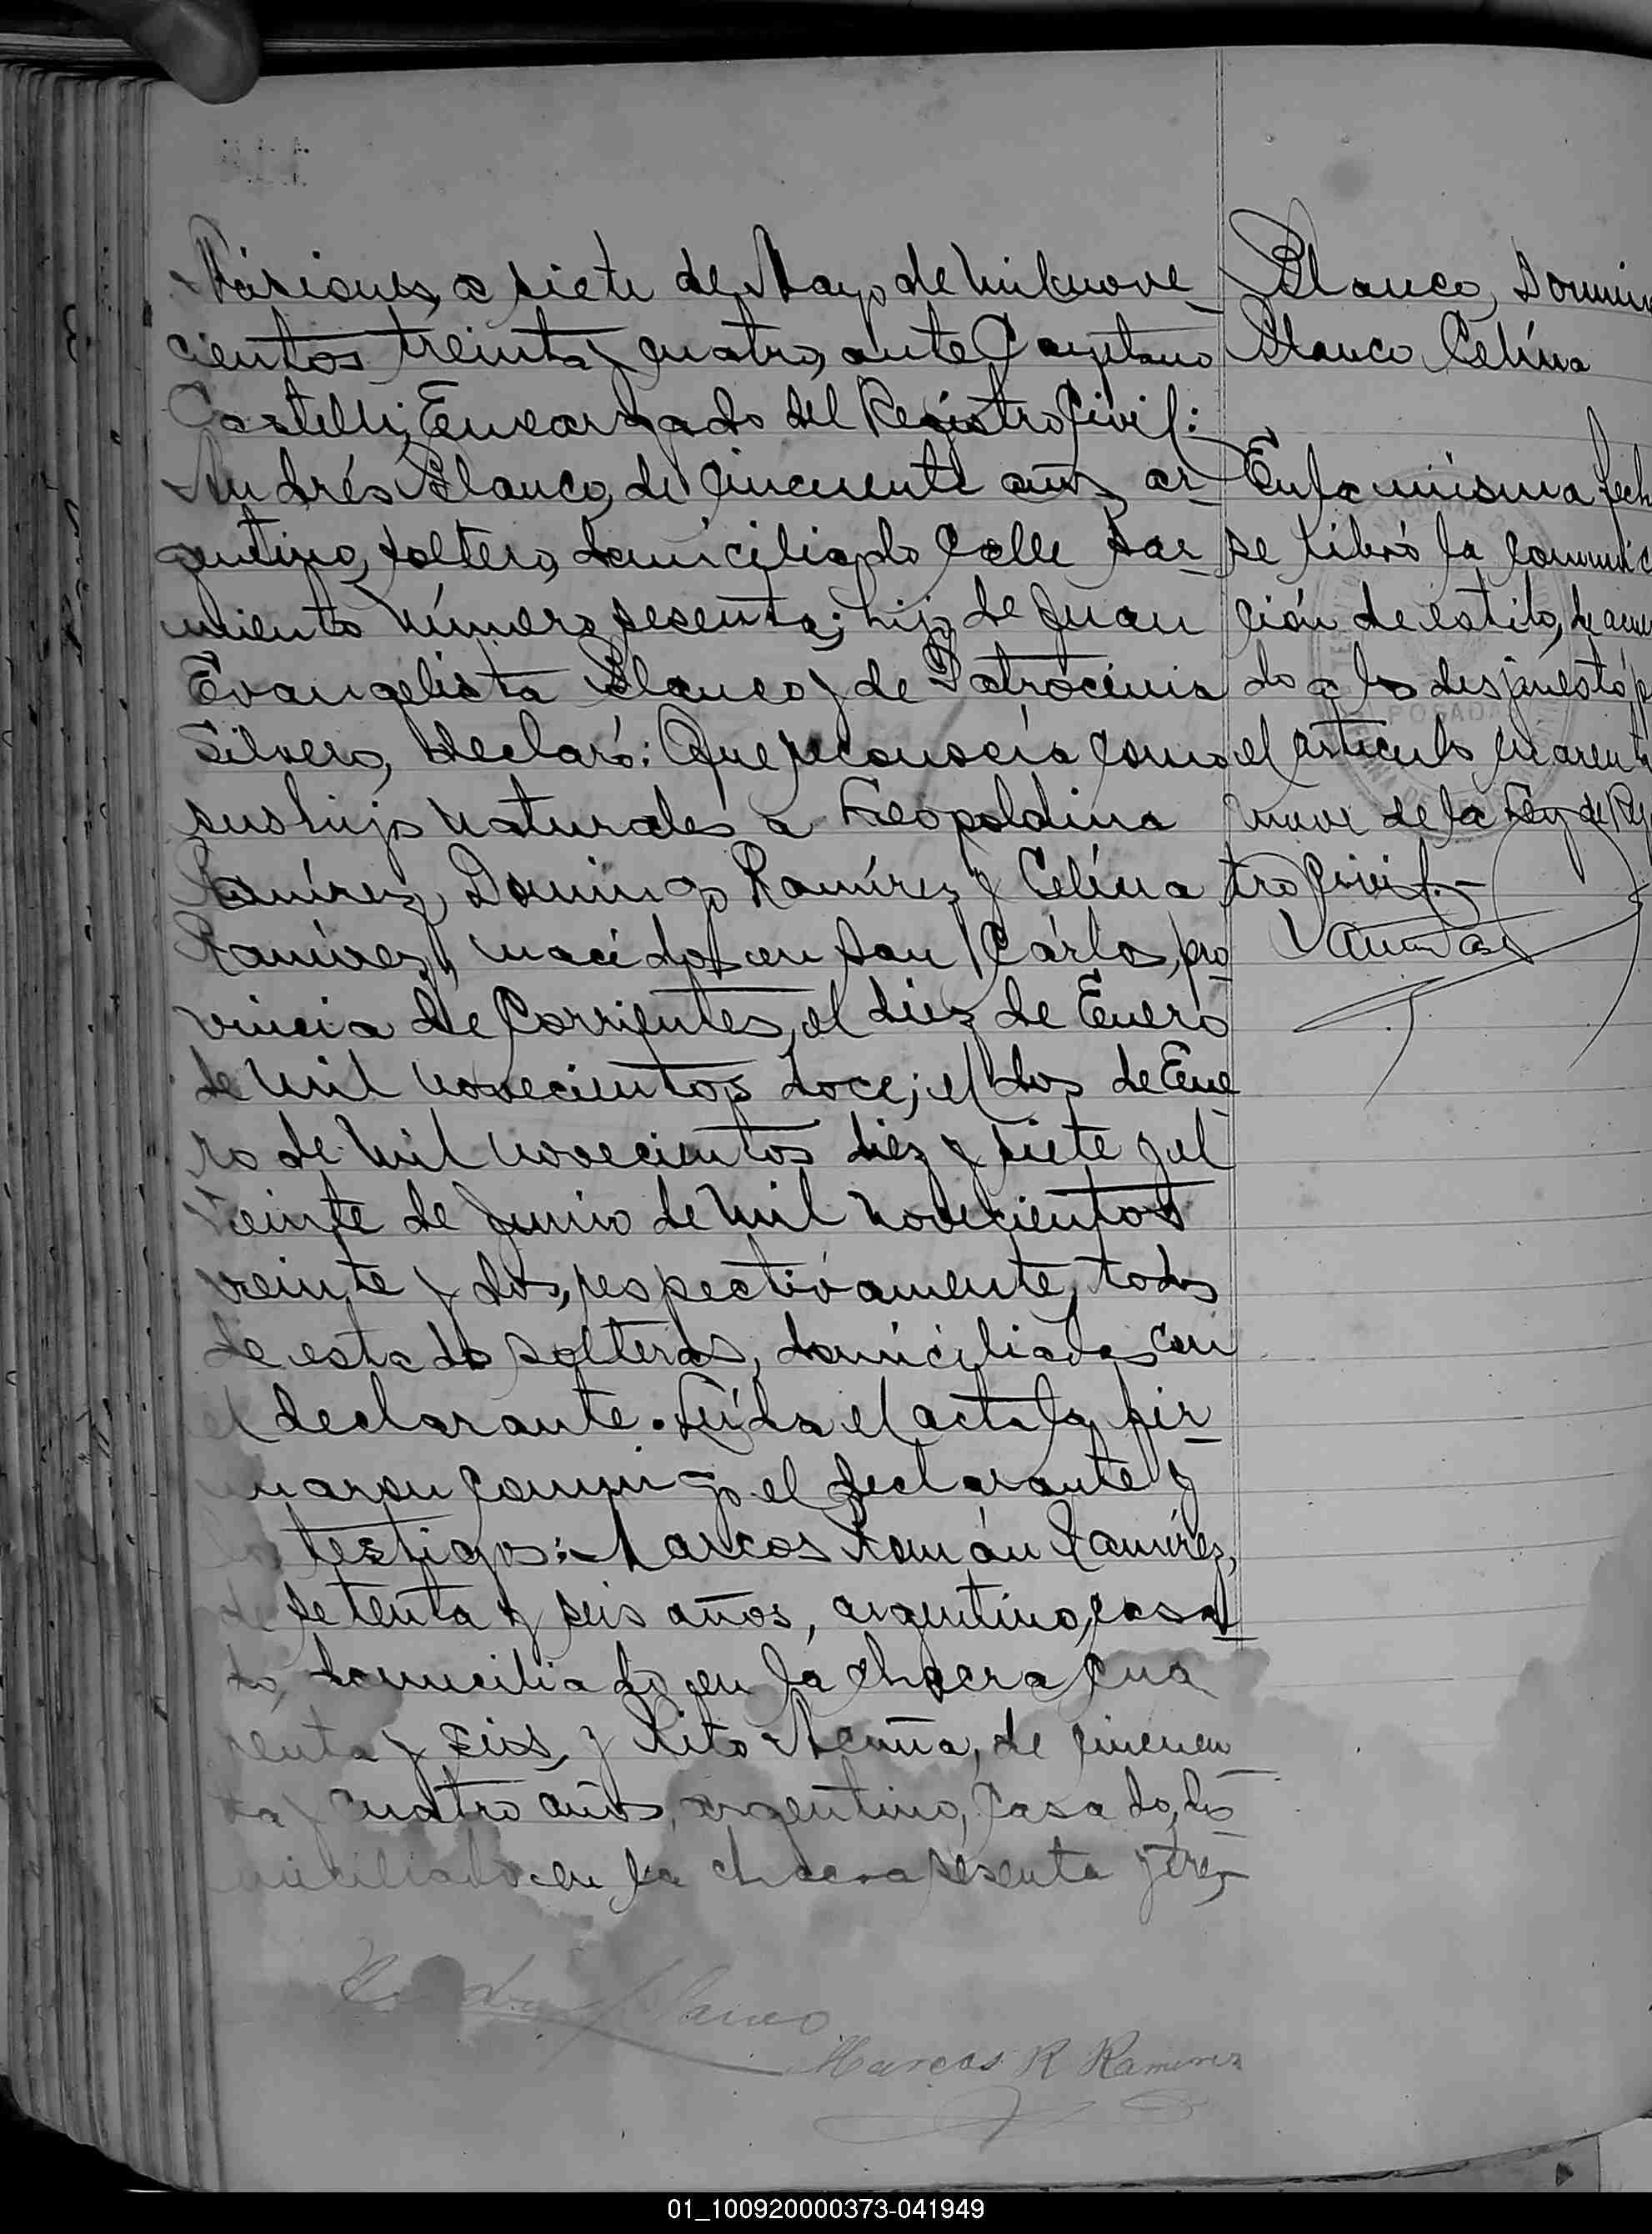 Misiones, a siete de Mayo de mil nove-
cientos treinta y cuatro, ante Cayetano
Castelli, Encargado del Registro Civil:
Andrés Blanco, de cincuenta años, ar-
gentino, soltero, domiciliado calle Sar-
miento número sesenta; hijo de Juan
Evangelista Blanco y de Patrocinia
Silvero, declaró: Que reconocía como
sus hijos naturales a Leopoldina
Ramírez, Domingo Ramírez y Celína
Ramírez, nacidos en San Cárlos, pro-
vincia de Corrientes, el diez de Enero
de mil novecientos doce; el dos de Ene-
ro de mil novecientos diez y siete y el
veinte de Junio de mil novecientos
veinte y dos, respectivamente, todos
de estado solteros, domiciliados con
el declarante. Leída el acta la fir-
maron conmigo el declarante y
los testigos: Marcos Román Ramírez,
de setenta y seis años, argentino, casa-
do, domiciliado en la chacra cua-
renta y seis, y Rito Acuña, de cincuen-
ta y cuatro años, argentino, casado, do-
miciliado en la chacra sesenta y tres,-
Andrés Blanco
Marcos R Ramirez
Blanco, Domin
Blanco Celína
En la misma fech
se libró la comunic
ción de estilo, de acuer
do a lo dispuesto p
el artículo cuarenta
nueve de la Ley de Reg
tro Civil.-
POSADAS
01_100920000373-041949